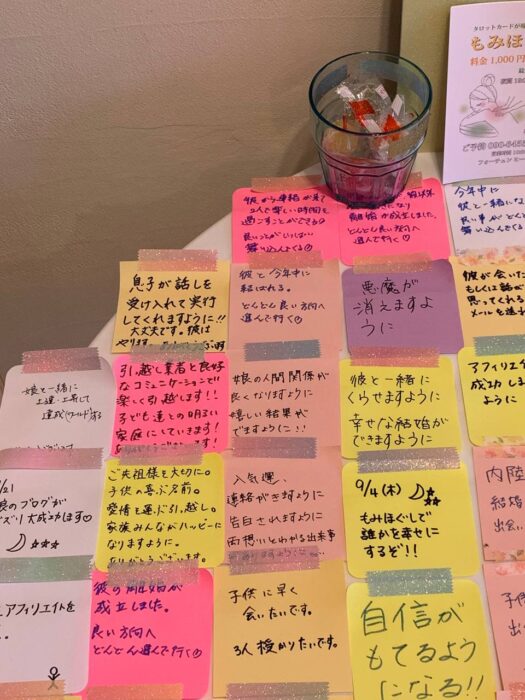 タロットカードが
もみほ
料金 1,000円
ご予約 090-643
フォーチュン ヒー
彼から連絡が来て
2人で楽しい時間を
過ごすことができる♡
良いことがいっぱい
舞い込んでくる☺
離婚が成立しました。
どんどん良い方向へ
進んで行く♡
今年中に
彼と一緒にな
良い事がどんど
舞い込んでくる
息子が話しを
受け入れて実行
してくれますように!!
大丈夫です。彼は
やります。
彼と今年中に
結ばれる。
どんどん良い方向へ
進んで行く☺
悪魔が
消えますよ
うに
彼が会いた
もしくは話が
思ってくれる
メールを送れ
娘と一緒に
上達・上昇して
達成(ワールド)する
引っ越し業者と良好
なコミュニケーションで
楽しく引越します!!
子ども達との明るい
家庭にしていきます!
娘の人間関係が
良くなりますように
嬉しい結果が
でますように!!
彼と一緒に
くらせますように
幸せな結婚が
できますように
アフィリエイ
成功しま
ように
/21
娘のブログが
ズリ大成功です♡
ご先祖様を大切に。
子供の喜ぶ名前。
愛情を運ぶ引っ越し。
家族みんながハッピーに
なりますように。
ありがとうございます。
人気運、
連絡がきますように
告白されますように
両想いとわかる出来事
9/4(木)
もみほぐしで
誰かを幸せに
するぞ!!
内陸
結婚
出会い
アフィリエイトを
彼の離婚が
成立しました。
良い方向へ
どんどん進んで行く♡
子供に早く
会いたいです。
3人授かりたいです。
自信が
もてるよう
になる!!